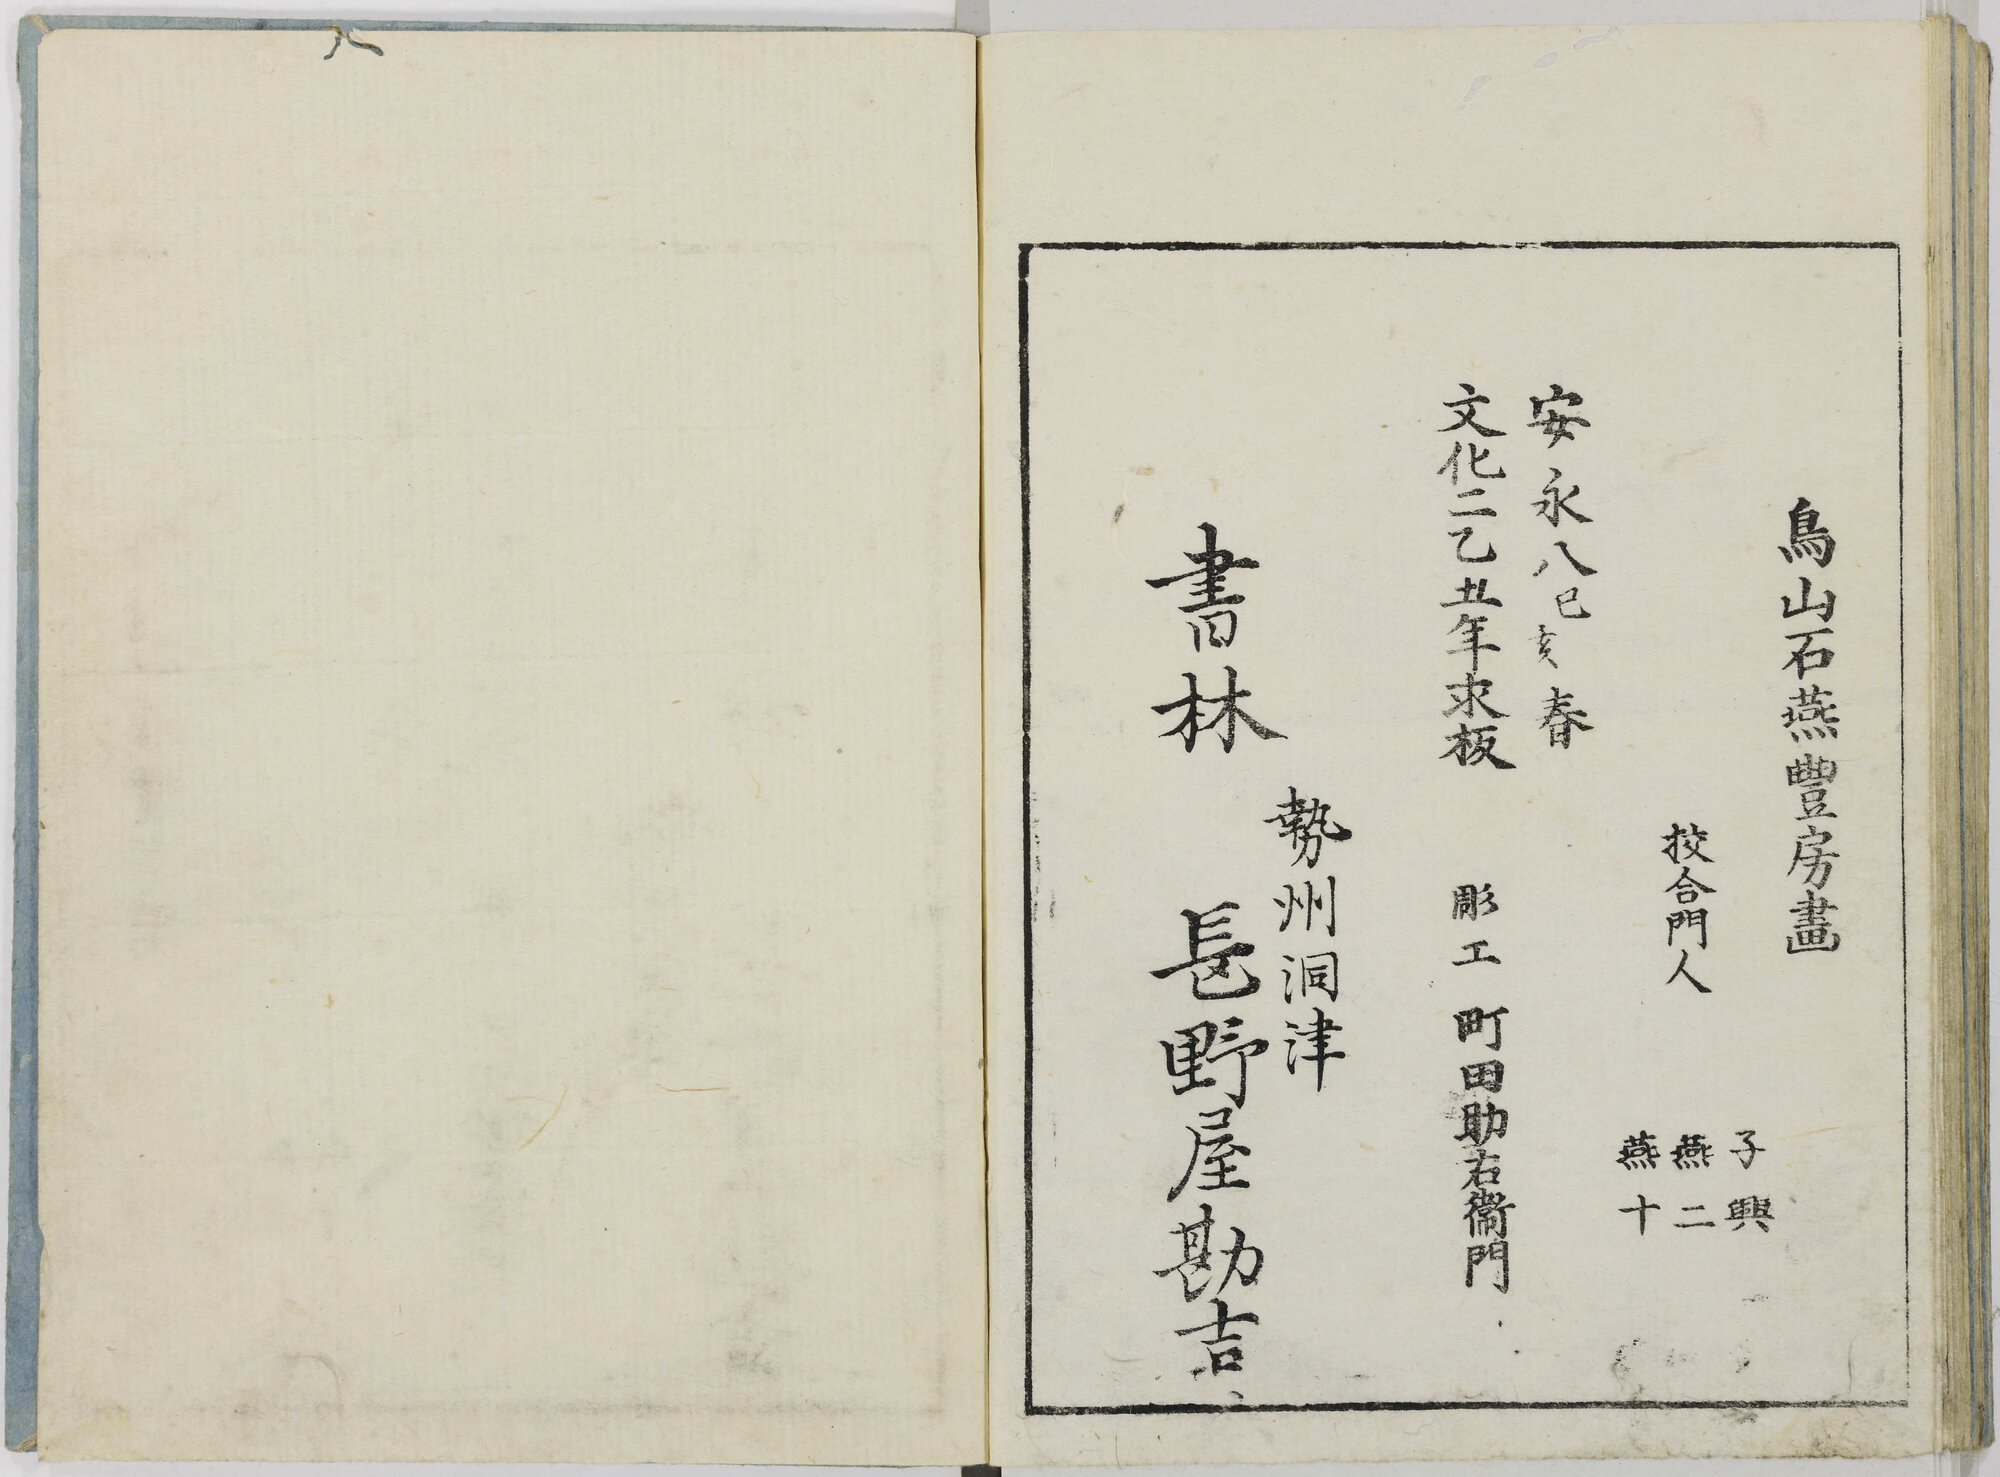 鳥山石燕豊房畫
校合門人
子興
燕二
燕十
安永八己亥春
文化二乙丑年求板
彫工 町田助右衞門
勢州洞津
書林 長野屋勘吉